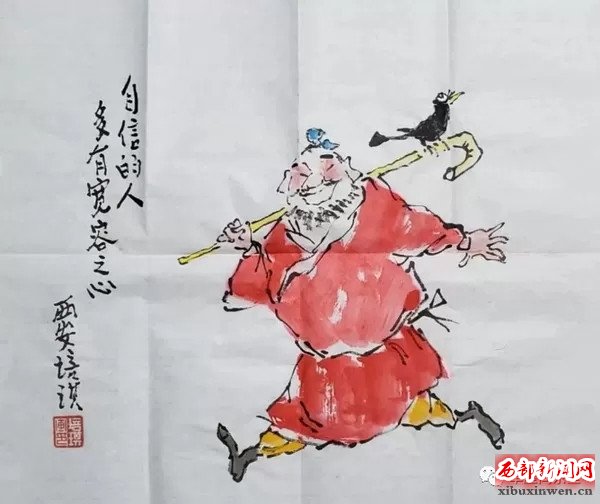 自信的人
多有宽容之心
西安培琪
西部新闻网
xibuxinwen.cn